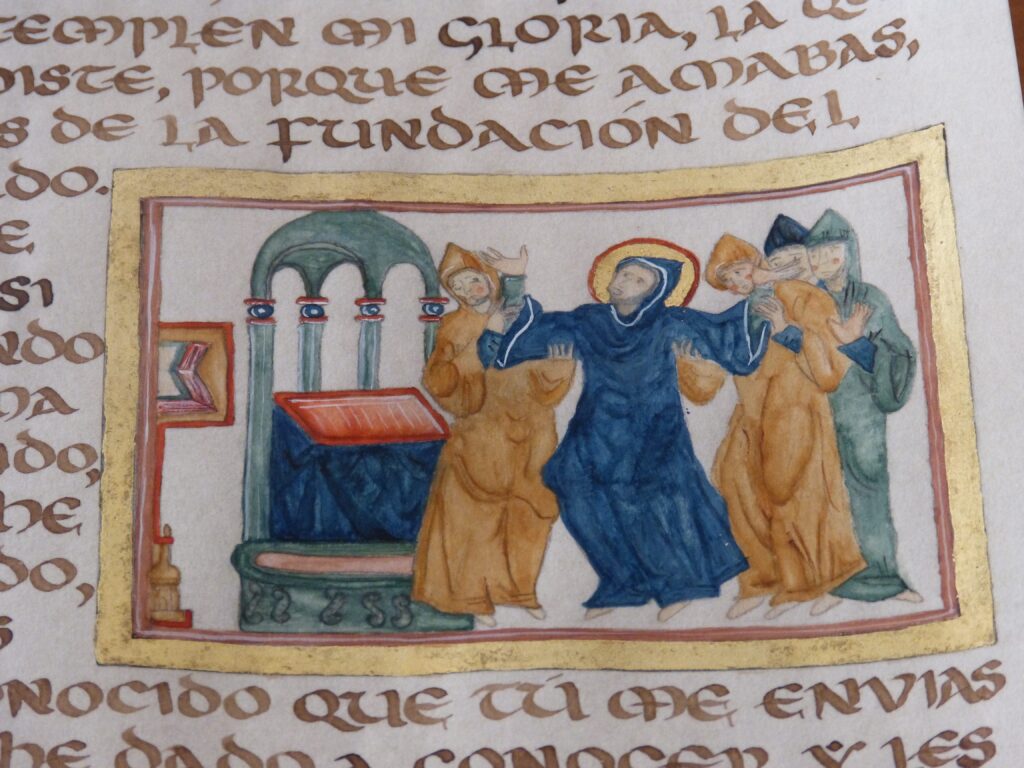 TEMPLEN MI GLORIA, LA
DISTE, PORQUE ME AMABAS,
S DE LA FUNDACIÓN DEL
DO.
E
SI
NDO
MA
IDO,
HE
DO,
S
ONOCIDO QUE TÚ ME ENVIAS
HE DADO A CONOCER, Y LES